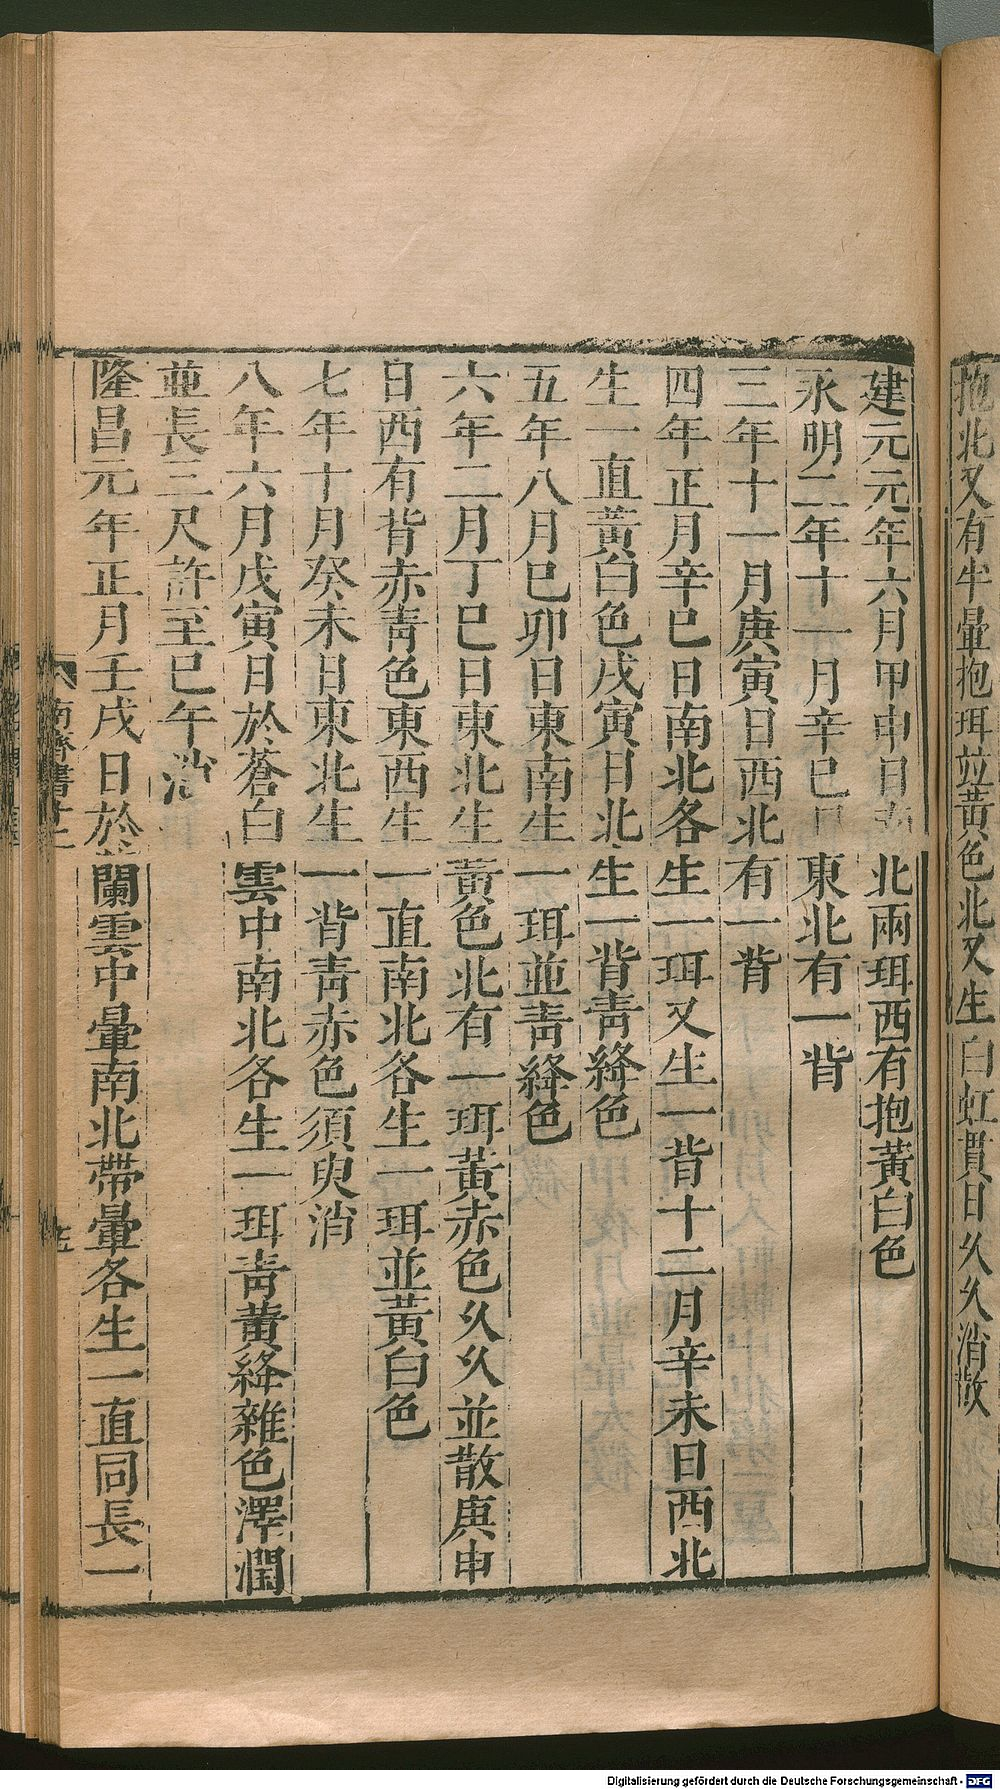 抱北又有半暈抱珥並黃色北又生白虹貫日久久消散
建元元年六月甲申日南北兩珥西有抱黃白色
永明二年十一月辛巳日東北有一背
三年十一月庚寅日西北有一背
四年正月辛巳日南北各生一珥又生一背十二月辛未日西北
生一直黃白色戌寅日北生一背青絳色
五年八月巳卯日東南生一珥並青絳色
六年二月丁巳日東北生黃色北有一珥黃赤色久久並散庚申
日西有背赤青色東西生一直南北各生一珥並黃白色
七年十月癸未日東北生一背青赤色須臾消
八年六月戊寅日於蒼白雲中南北各生一珥青黃絳雜色澤潤
並長三尺許至巳午消
隆昌元年正月壬戌日於蘭雲中暈南北帶暈各生一直同長一
南齊書十二
Digitalisierung gefördert durch die Deutsche Forschungsgemeinschaft - DFG